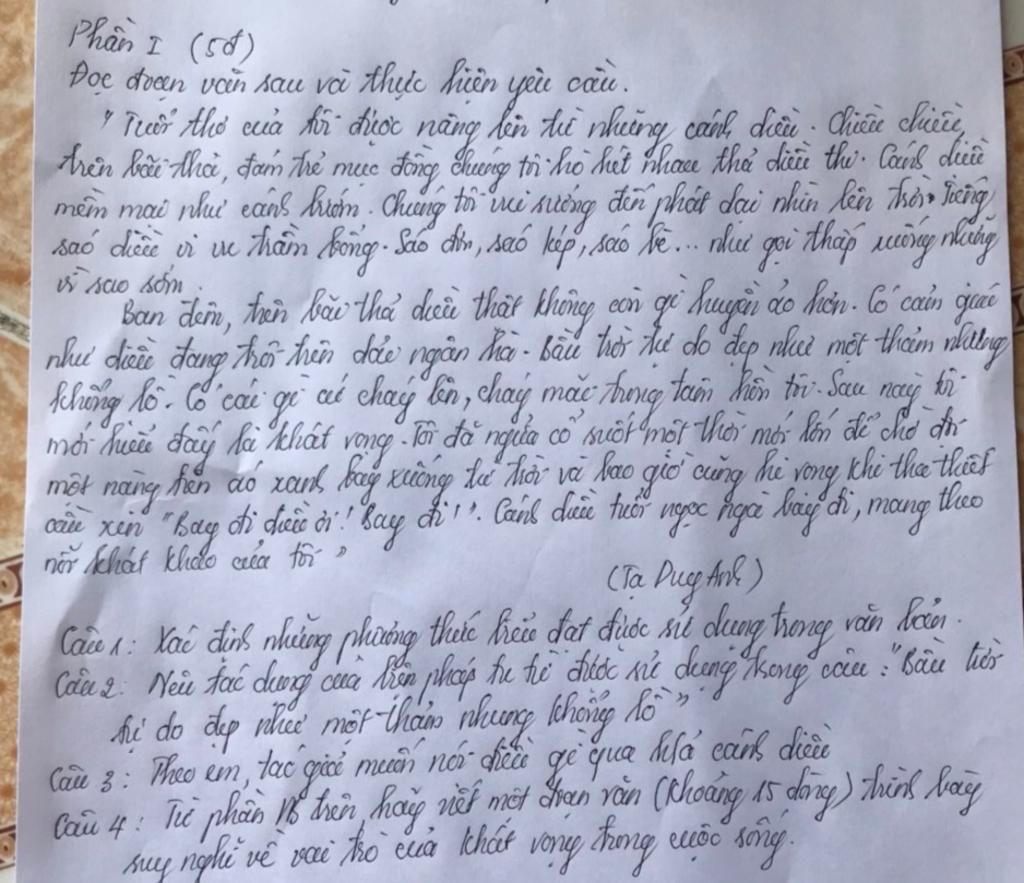 Phần I (5đ)
Đọc đoạn văn sau và thực hiện yêu cầu.
"Tuổi thơ của tôi được nâng lên từ những cánh diều. Chiều chiều,
trên bãi thả, đám trẻ mục đồng chúng tôi hò hét nhau thả diều thi. Cánh diều
mềm mại như cánh bướm. Chúng tôi vui sướng đến phát dại nhìn lên trời. Tiếng
sáo diều vi vu trầm bổng. Sáo đơn, sáo kép, sáo bè... như gọi thấp xuống những
vì sao sớm.
Ban đêm, trên bãi thả diều thật không còn gì huyền ảo hơn. Có cảm giác
như diều đang trôi trên dải ngân hà. Bầu trời tự do đẹp như một thảm nhung
khổng lồ. Có cái gì cứ cháy lên, cháy mãi trong tâm hồn tôi. Sau này tôi
mới hiểu đấy là khát vọng. Tôi đã ngửa cổ suốt một thời mới lớn để chờ đợi
một nàng tiên áo xanh bay xuống từ trời và bao giờ cũng hi vọng khi tha thiết
cầu xin "Bay đi diều ơi! Bay đi!". Cánh diều tuổi ngọc ngà bay đi, mang theo
nỗi khát khao của tôi"
(Tạ Duy Anh)
Câu 1: Xác định những phương thức biểu đạt được sử dụng trong văn bản.
Câu 2: Nêu tác dụng của biện pháp tu từ được sử dụng trong câu: "Bầu trời
tự do đẹp như một thảm nhung khổng lồ"
Câu 3: Theo em, tác giả muốn nói điều gì qua h/ả cánh diều
Câu 4: Từ phần trên, hãy viết một đoạn văn (khoảng 15 dòng) trình bày
suy nghĩ về vai trò của khát vọng trong cuộc sống.